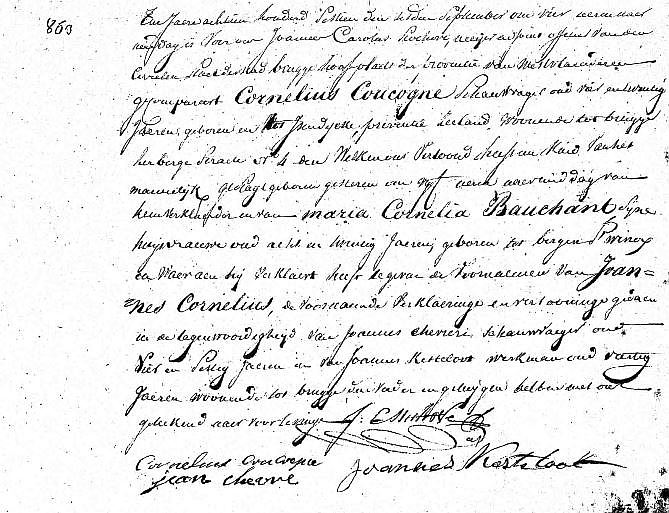 863
Een Jaere achtien honderd sestien den september om vier uren naer
middag is voor ons Joannes Carolus officier van den
Civielen Staet der stad brugge hoofdplaets der provintie van Westvlaenderen
gecompareert Cornelius Coucogne Schauwvager oud vier en twintig
Jaeren, geboren in provintie Zeeland, woonende tot brugge
herberge straete N° 4 den Welken ons Vertoond heeft een Kind van het
mannelijk geslagt geboren gisteren om vyf uren naermiddag van
hem verklaerder en van maria Cornelia Bauchant Syne
huysvrauwe oud acht en twintig Jaeren geboren tot bergen Winox
en Waer aen hij Verklaert heeft te geven de Voornaemen van Joan=
=nes Cornelius, de voornoemde Verklaeringe en vertooninge gedaen
in de tegenwoordigheyd van Joannes chevrie Schauwvager oud
Vier en Sestig Jaeren en van Joannes Kesteloot werkman oud veertig
Jaeren woonende tot brugge den vader en getuygen hebben met ons
geteekend naer voorlesinge
Cornelius Coucogne
jean chevre Joannes Kesteloot